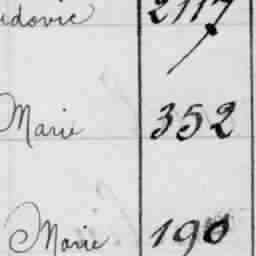 udovic 2117
Marie 352
Marie 190